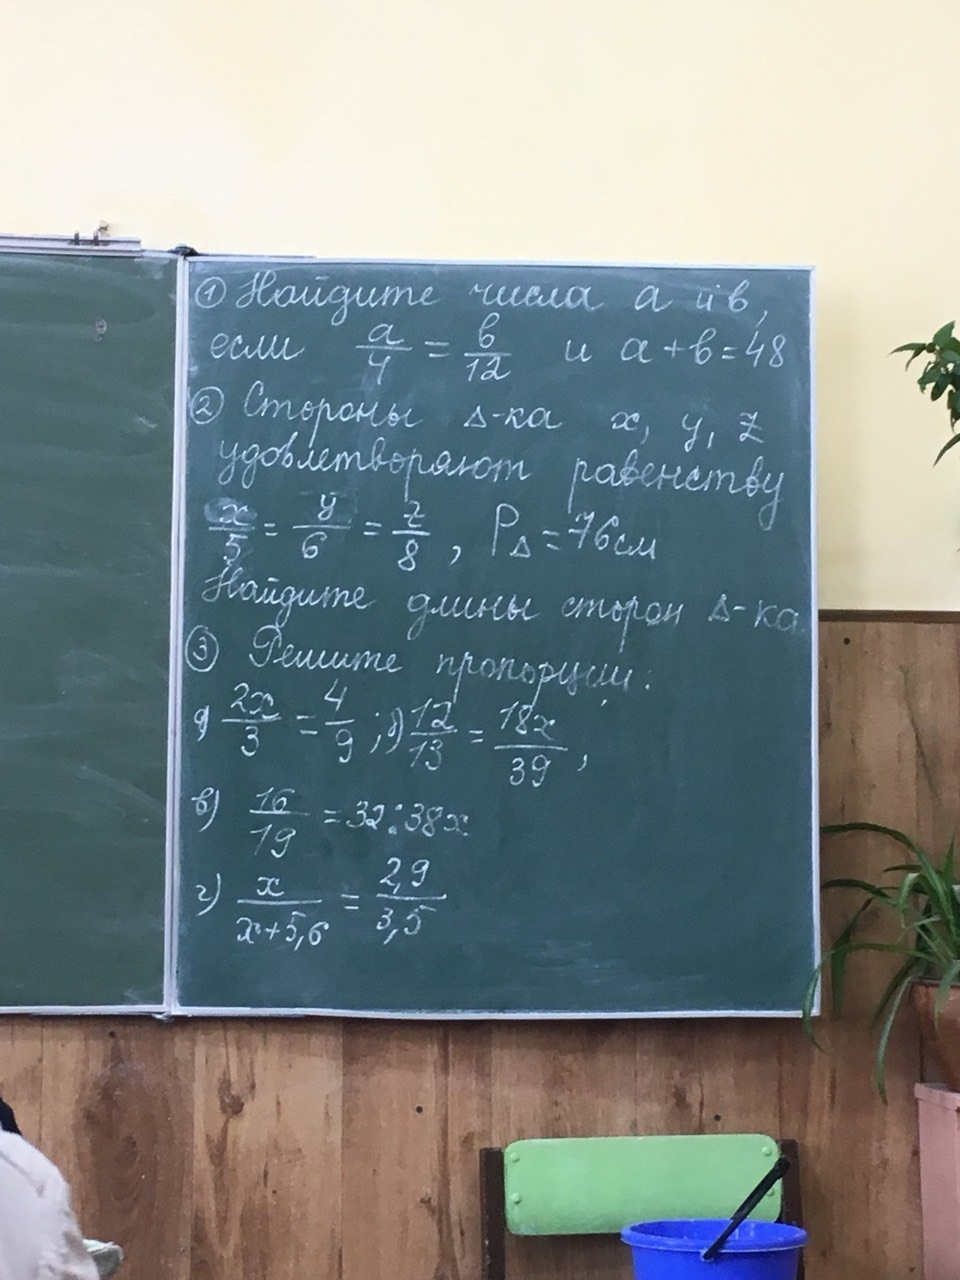 ① Найдите числа а и в,
если а/4 = в/12 и а+в=48
② Стороны Δ-ка x, y, z
удовлетворяют равенству
x/5 = y/6 = z/8, PΔ=76см
Найдите длины сторон Δ-ка
③ Решите пропорции:
а) 2x/3 = 4/9; б) 12/13 = 18x/39;
в) 16/19 = 32:38x
г) x/(x+5,6) = 2,9/3,5